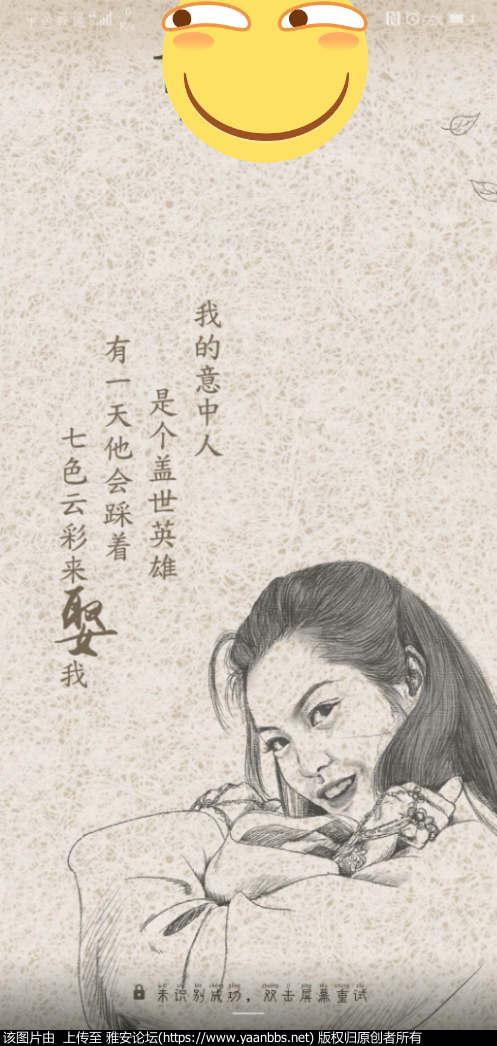 66%
我的意中人
是个盖世英雄
有一天他会踩着
七色云彩来娶我
未识别成功，双击屏幕重试
该图片由 上传至 雅安论坛(https://www.yaanbbs.net) 版权归原创者所有